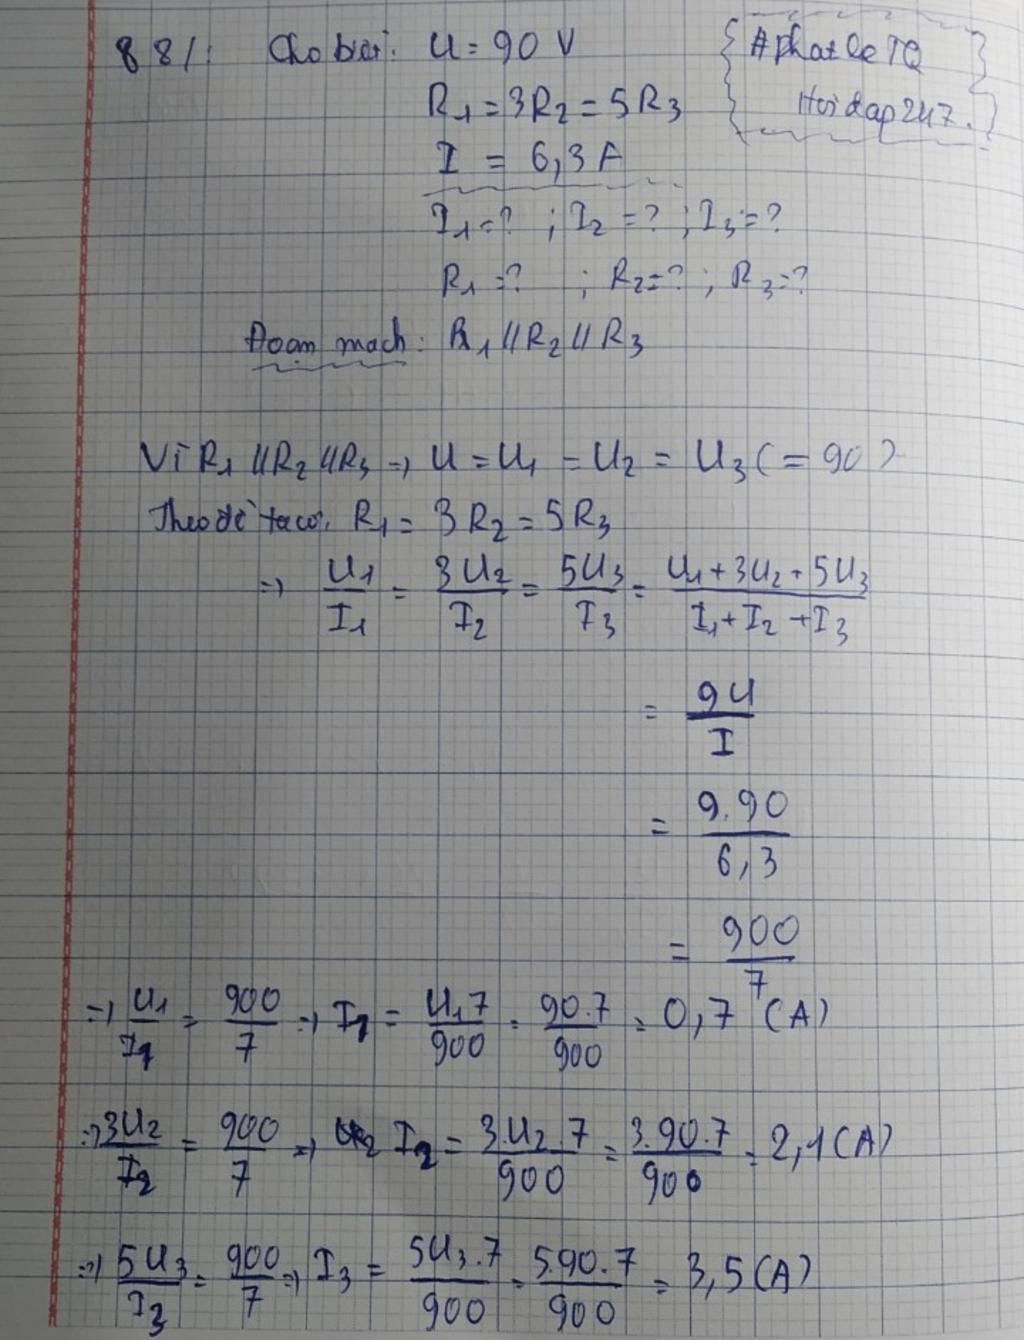 88/. Cho biết: U = 90 V
R₁ = 3R₂ = 5R₃
I = 6,3 A
I₁ = ? ; I₂ = ? ; I₃ = ?
R₁ = ? ; R₂ = ? ; R₃ = ?
{#phatleTQ
Hoidap247.}
Đoạn mạch: R₁ // R₂ // R₃
Vì R₁ // R₂ // R₃ => U = U₁ = U₂ = U₃ (= 90)
Theo đề ta có: R₁ = 3R₂ = 5R₃
=> U₁/I₁ = 3U₂/I₂ = 5U₃/I₃ = (U₁ + 3U₂ + 5U₃)/(I₁ + I₂ + I₃)
= 9U/I
= 9.90/6,3
= 900/7
=> U₁/I₁ = 900/7 => I₁ = U₁.7/900 = 90.7/900 = 0,7 (A)
=> 3U₂/I₂ = 900/7 => I₂ = 3.U₂.7/900 = 3.90.7/900 = 2,1 (A)
=> 5U₃/I₃ = 900/7 => I₃ = 5U₃.7/900 = 5.90.7/900 = 3,5 (A)